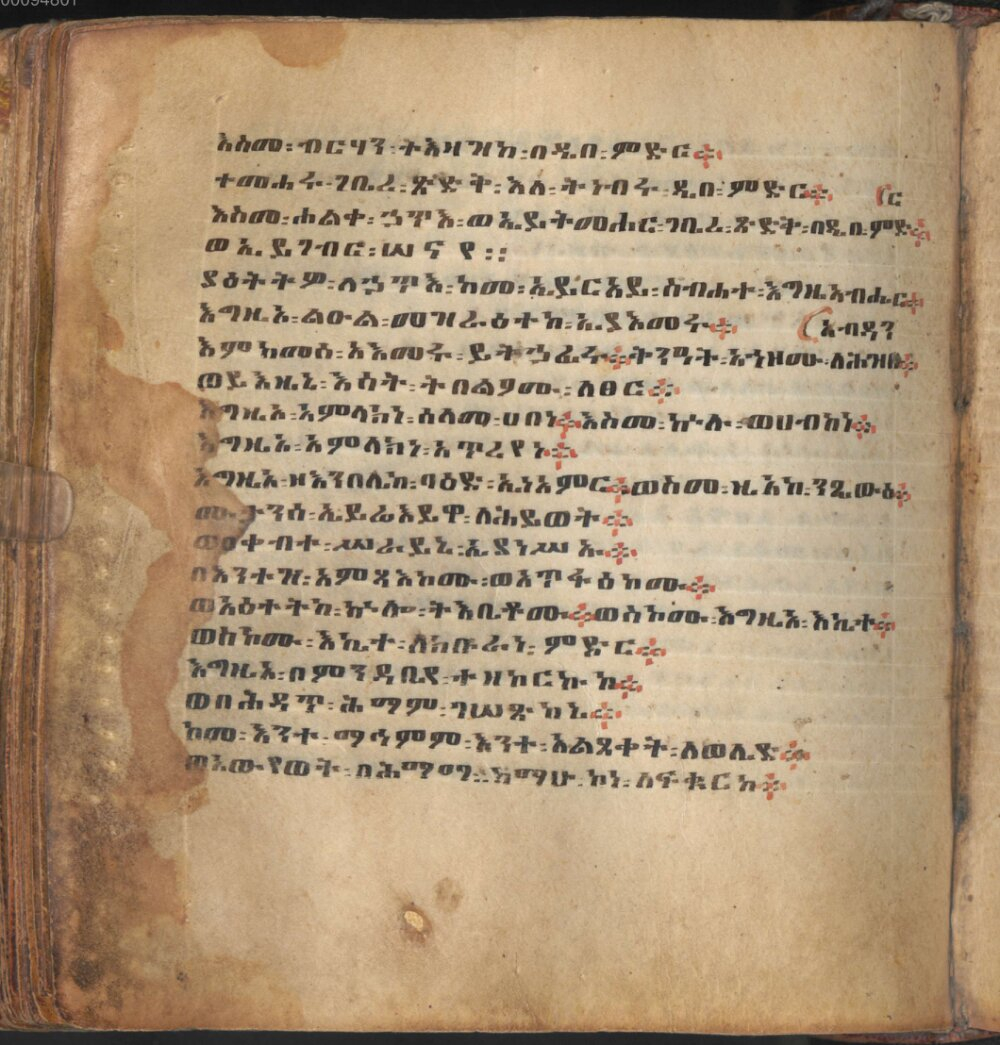 00094801
እስመ፡ብርሃን፡ትእዛዝከ፡በዲበ፡ምድር፨
ተመሐሩ፡ገቢረ፡ጽድቅ፡እለ፡ትነብሩ፡ዲበ፡ምድር፨
እስመ፡ሐልቀ፡ኃጥእ፡ወኢይትመሐር፡ገቢረ፡ጽድቅ፡በዲበ፡ምድ፨ ር
ወኢይገብር፡ሠናየ።
ያዕትትዎ፡ለኃጥእ፡ከመ፡ኢይርአይ፡ስብሐተ፡እግዚአብሔር፨
እግዚኦ፡ልዑል፡መዝራዕተከ፡ኢያእመሩ፨ አብዳን
እምከመሰ፡አእመሩ፡ይትኃፈሩ፨ትንዓት፡አኀዞሙ፡ለሕዝበ፨
ወይእዜኒ፡እሳት፡ትበልዖሙ፡ለፀር፨
እግዚኦ፡አምላክነ፡ሰላመ፡ሀበነ፨እስመ፡ኵሎ፡ወሀብከነ፨
እግዚኦ፡አምላክነ፡አጥረየነ፨
እግዚኦ፡ዘእንበሌከ፡ባዕድ፡ኢነአምር፨ወስመ፡ዚአከ፡ንጼውዕ፨
ኢይሬእይዋ፡ለሕይወት፨
ወዐቀብተ፡ሥራይኒ፡ኢያነሥኡ፨
በእንተዝ፡አምጻእከሙ፡ወአጥፋዕከሙ፨
ወአዕተትከ፡ኵሎ፡ትእቢቶሙ፨ወስኮሙ፡እግዚኦ፡እኪተ፨
ወስኮሙ፡እኪተ፡ለክቡራነ፡ምድር፨
እግዚኦ፡በምንዳቤየ፡ተዘከርኩከ፨
ወበሕዳጥ፡ሕማም፡ገሠጽከኒ፨
ከመ፡እንተ፡ማኅምም፡እንተ፡አልጸቀት፡ለወሊድ፨
ወአውየወት፡በሕማማ፡ከማሁ፡ኮነ፡ለፍቁርከ፨